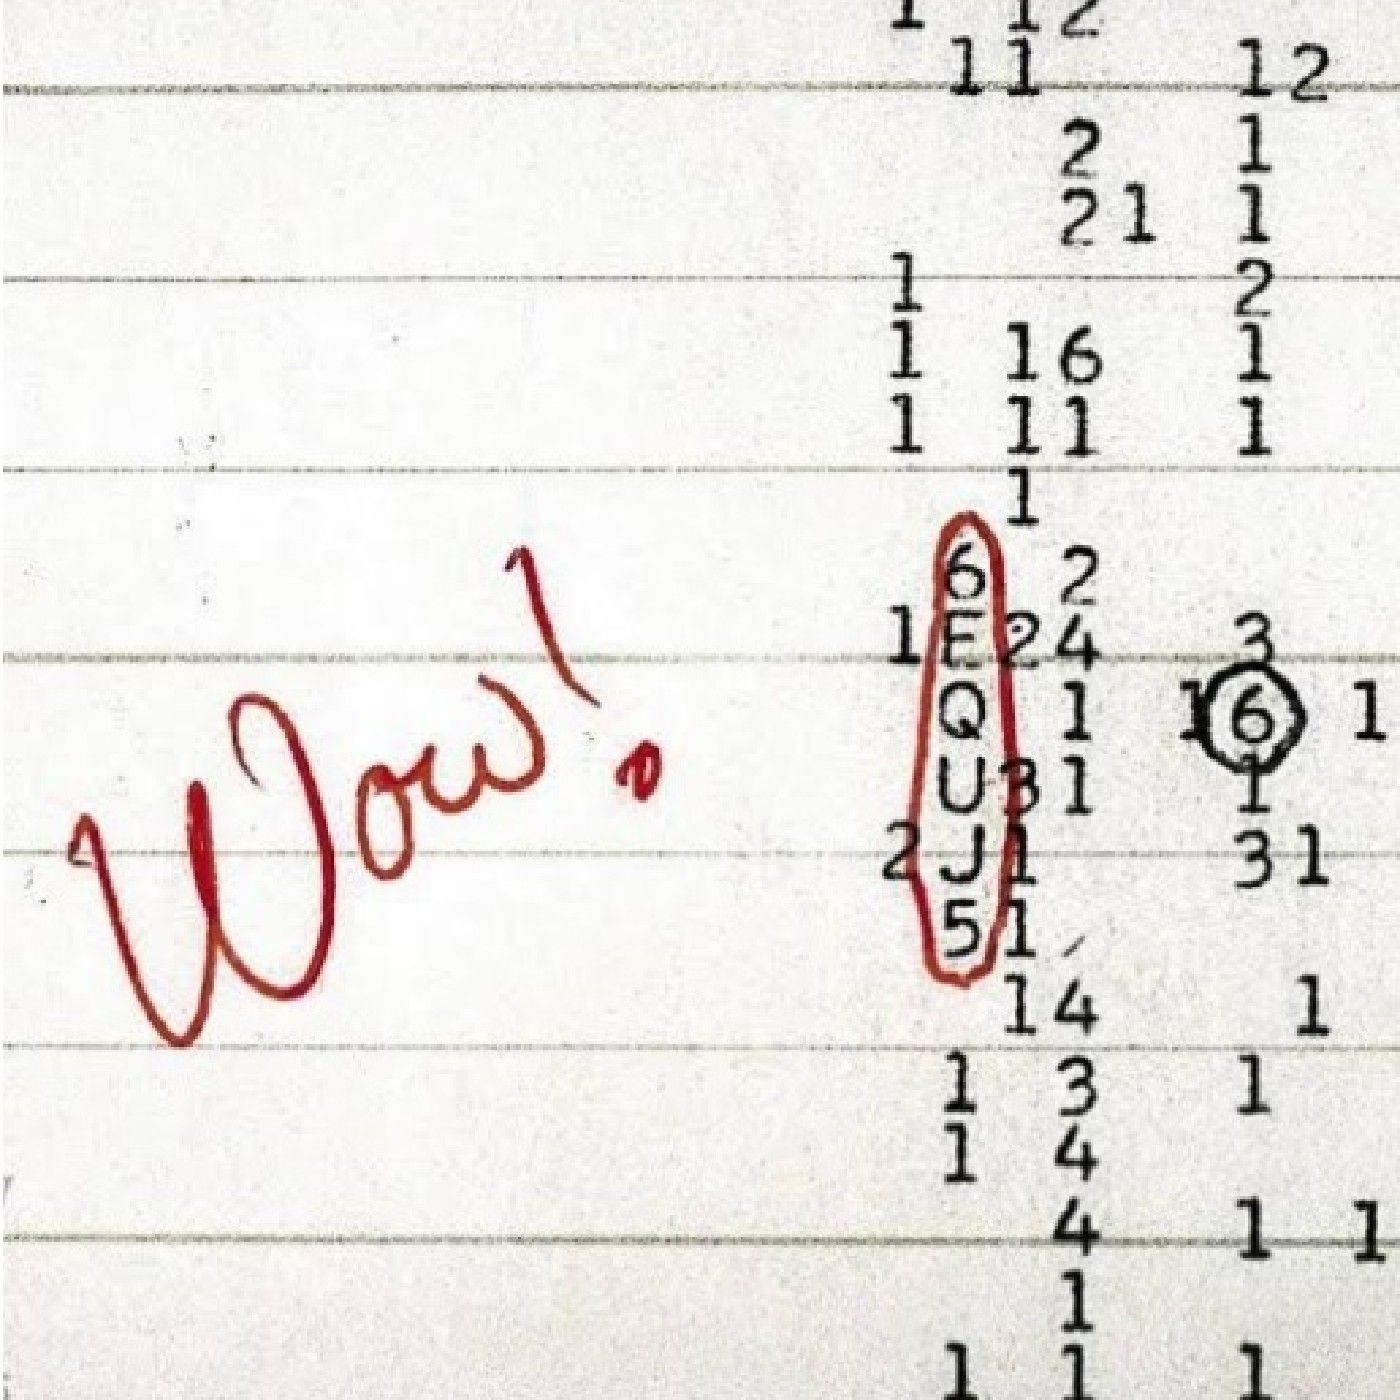 1 1 2
1 1 1 2
2 1
2 1 1
1 2
1 1 6 1
1 1 1 1
1
6 2
1 E 2 4 3
Q 1 1 6 1
U 3 1 1
2 J 1 3 1
5 1
1 4 1
1 3 1
1 4
4 1 1
1
1 1 1
Wow!